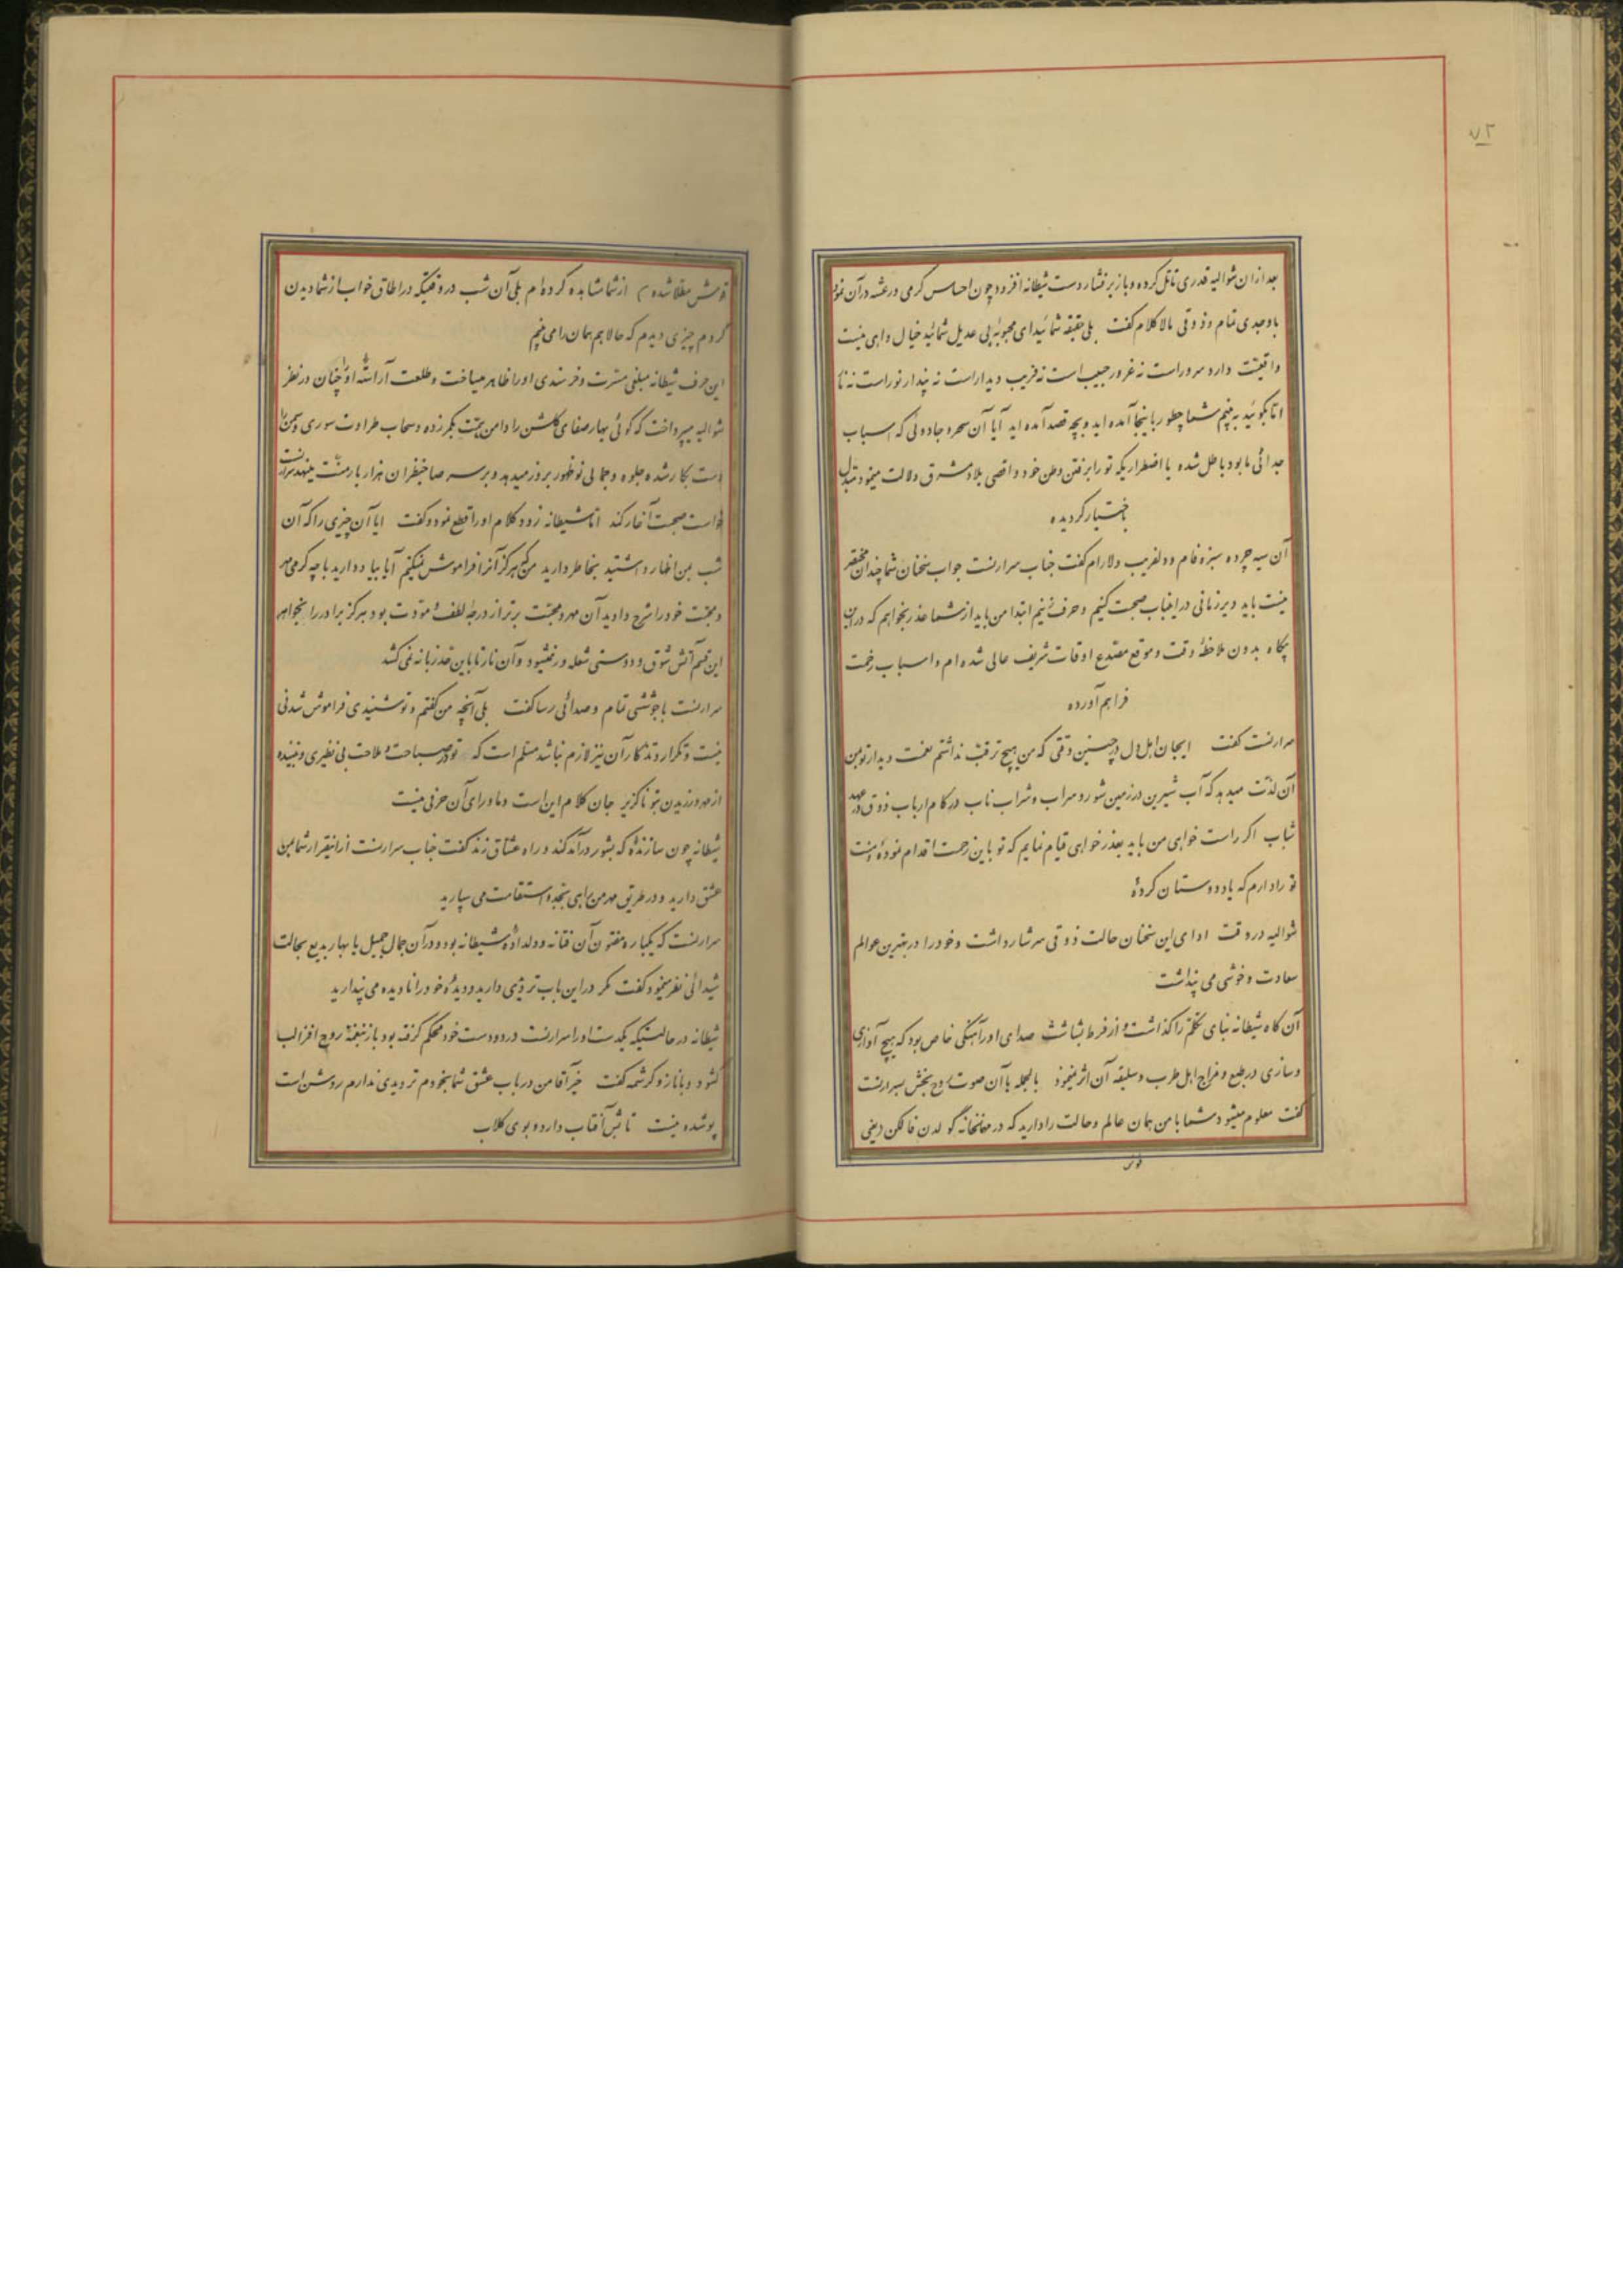 ۷۲
بعد از ان شوالیه قدری تامل کرده و باز بر فشار دست شیطانه افزود چون احساس کرمی و رعشه در آن نمود
با وجدی تمام و ذوقی مالا کلام کفت بلی حقیقة شمائید ای محبوبهٔ بی عدیل شمائید خیال واهی نیست
واقعیّت دارد سرور است نه غرور حبیب است نه فریب دیدار است نه پندار نور است نه نار
امّا بکوئید به بینم شما چطور باینجا آمده اید و بچه قصد آمده اید آیا آن سحر و جادوئی که اسباب
جدائی ما بود باطل شده یا اضطراریکه تو را برفتن وطن خود و اقصی بلاد مشرق دلالت مینمود مبدّل
باختیار کردیده
آن سیه چرده سبزه فام و دلفریب دلارام کفت جناب سرارنست جواب سخنان شما چندان مختصر
نیست باید دیر زمانی در اینباب صحبت کنیم و حرف زنیم ابتدا من باید از شما عذر بخواهم که در این
بیکاه بدون ملاحظهٔ وقت و موقع مصدع اوقات شریف عالی شده ام و اسباب زحمت
فراهم آورده
سرارنست کفت ایجان اهل دل در چنین وقتی که من هیچ ترقب نداشتم نعمت دیدار تو بمن
آن لذّت میدهد که آب شیرین در زمین شور و سراب و شراب ناب در کام ارباب ذوق در عهد
شباب اکر راست خواهی من باید بعذر خواهی قیام نمایم که تو باین زحمت اقدام نمودهٔ منت
تو را دارم که یاد دوستان کردهٔ
شوالیه در وقت ادای این سخنان حالت ذوقی سرشار داشت و خود را در بهترین عوالم
سعادت و خوشی می پنداشت
آن کاه شیطانه بنای تکلم را کذاشت و از فرط بشاشت صدای او را آهنکی خاص بود که هیچ آوازی
و سازی در طبع و مزاج اهل طرب و سلیقه آن اثر نمینمود بالجمله با آن صوت روح بخش بسرارنست
کفت معلوم میشود شما با من همان عالم و حالت را دارید که در مهمانخانه کولدن فالکن (یعنی
قوش
قوش مطلا شده) از شما مشاهده کرده ام بلی آن شب در وقتیکه در اطاق خواب از شما دیدن
کردم چیزی دیدم که حالا هم همان را می بینم
این حرف شیطانه مبلغی مسرت و خرسندی او را ظاهر میساخت و طلعت آراستهٔ او چنان در نظر
شوالیه میپرداخت که کوئی بهار صفای کلشن را دامن همّت بکمر زده و سحاب طراوت سوری و سمن را
دست بکار شده جلوه و جمالی نو ظهور بروز میدهد و بر سر صاحبنظران هزار بار منّت مینهد سرارنست
خواست صحبت آغاز کند امّا شیطانه زود کلام او را قطع نمود و کفت ایا آن چیزی را که آن
شب بمن اظهار داشتید بخاطر دارید من که هرکز آنرا فراموش نمیکنم آیا بیاد دارید با چه کرمی مهر
و محبت خود را شرح دادید آن مهر و محبّت برتر از درجهٔ لطف و مودت بود هرکز برادر را بخواهر
این قسم آتش شوق و دوستی شعله ور نمیشود و آن نار تا باین حد زبانه نمی کشد
سرارنست با جوششی تمام و صدائی رسا کفت بلی آنچه من کفتم و تو شنیدی فراموش شدنی
نیست و تکرار و تذکار آن نیز لازم نباشد مسلم است که تو در صباحت و ملاحت بی نظیری و بیننده
از مهر ورزیدن بتو ناکزیر جان کلام این است و ماورای آن حرفی نیست
شیطانه چون سازندهٔ که بشور درآمد کند و راه عشاق زند کفت جناب سرارنست از اینقرار شما بمن
عشق دارید و در طریق مهر من براهی بجد و استقامت می سپارید
سرارنست که یکباره مفتون آن فتانه و دلدادهٔ شیطانه بود و در آن جمال جمیل یا بهار بدیع بحالت
شیدائی نظر مینمود کفت مکر در این باب تردیدی دارید و دیدهٔ خود را نادیده می پندارید
شیطانه در حالتیکه یکدست او را سرارنست در دو دست خود محکم کرفته بود باز بنغمهٔ روح افزا لب
کشود و با ناز و کرشمه کفت خیر آقا من در باب عشق شما بخودم تردیدی ندارم روشن است
پوشیده نیست تابش آفتاب دارد و بوی کلاب